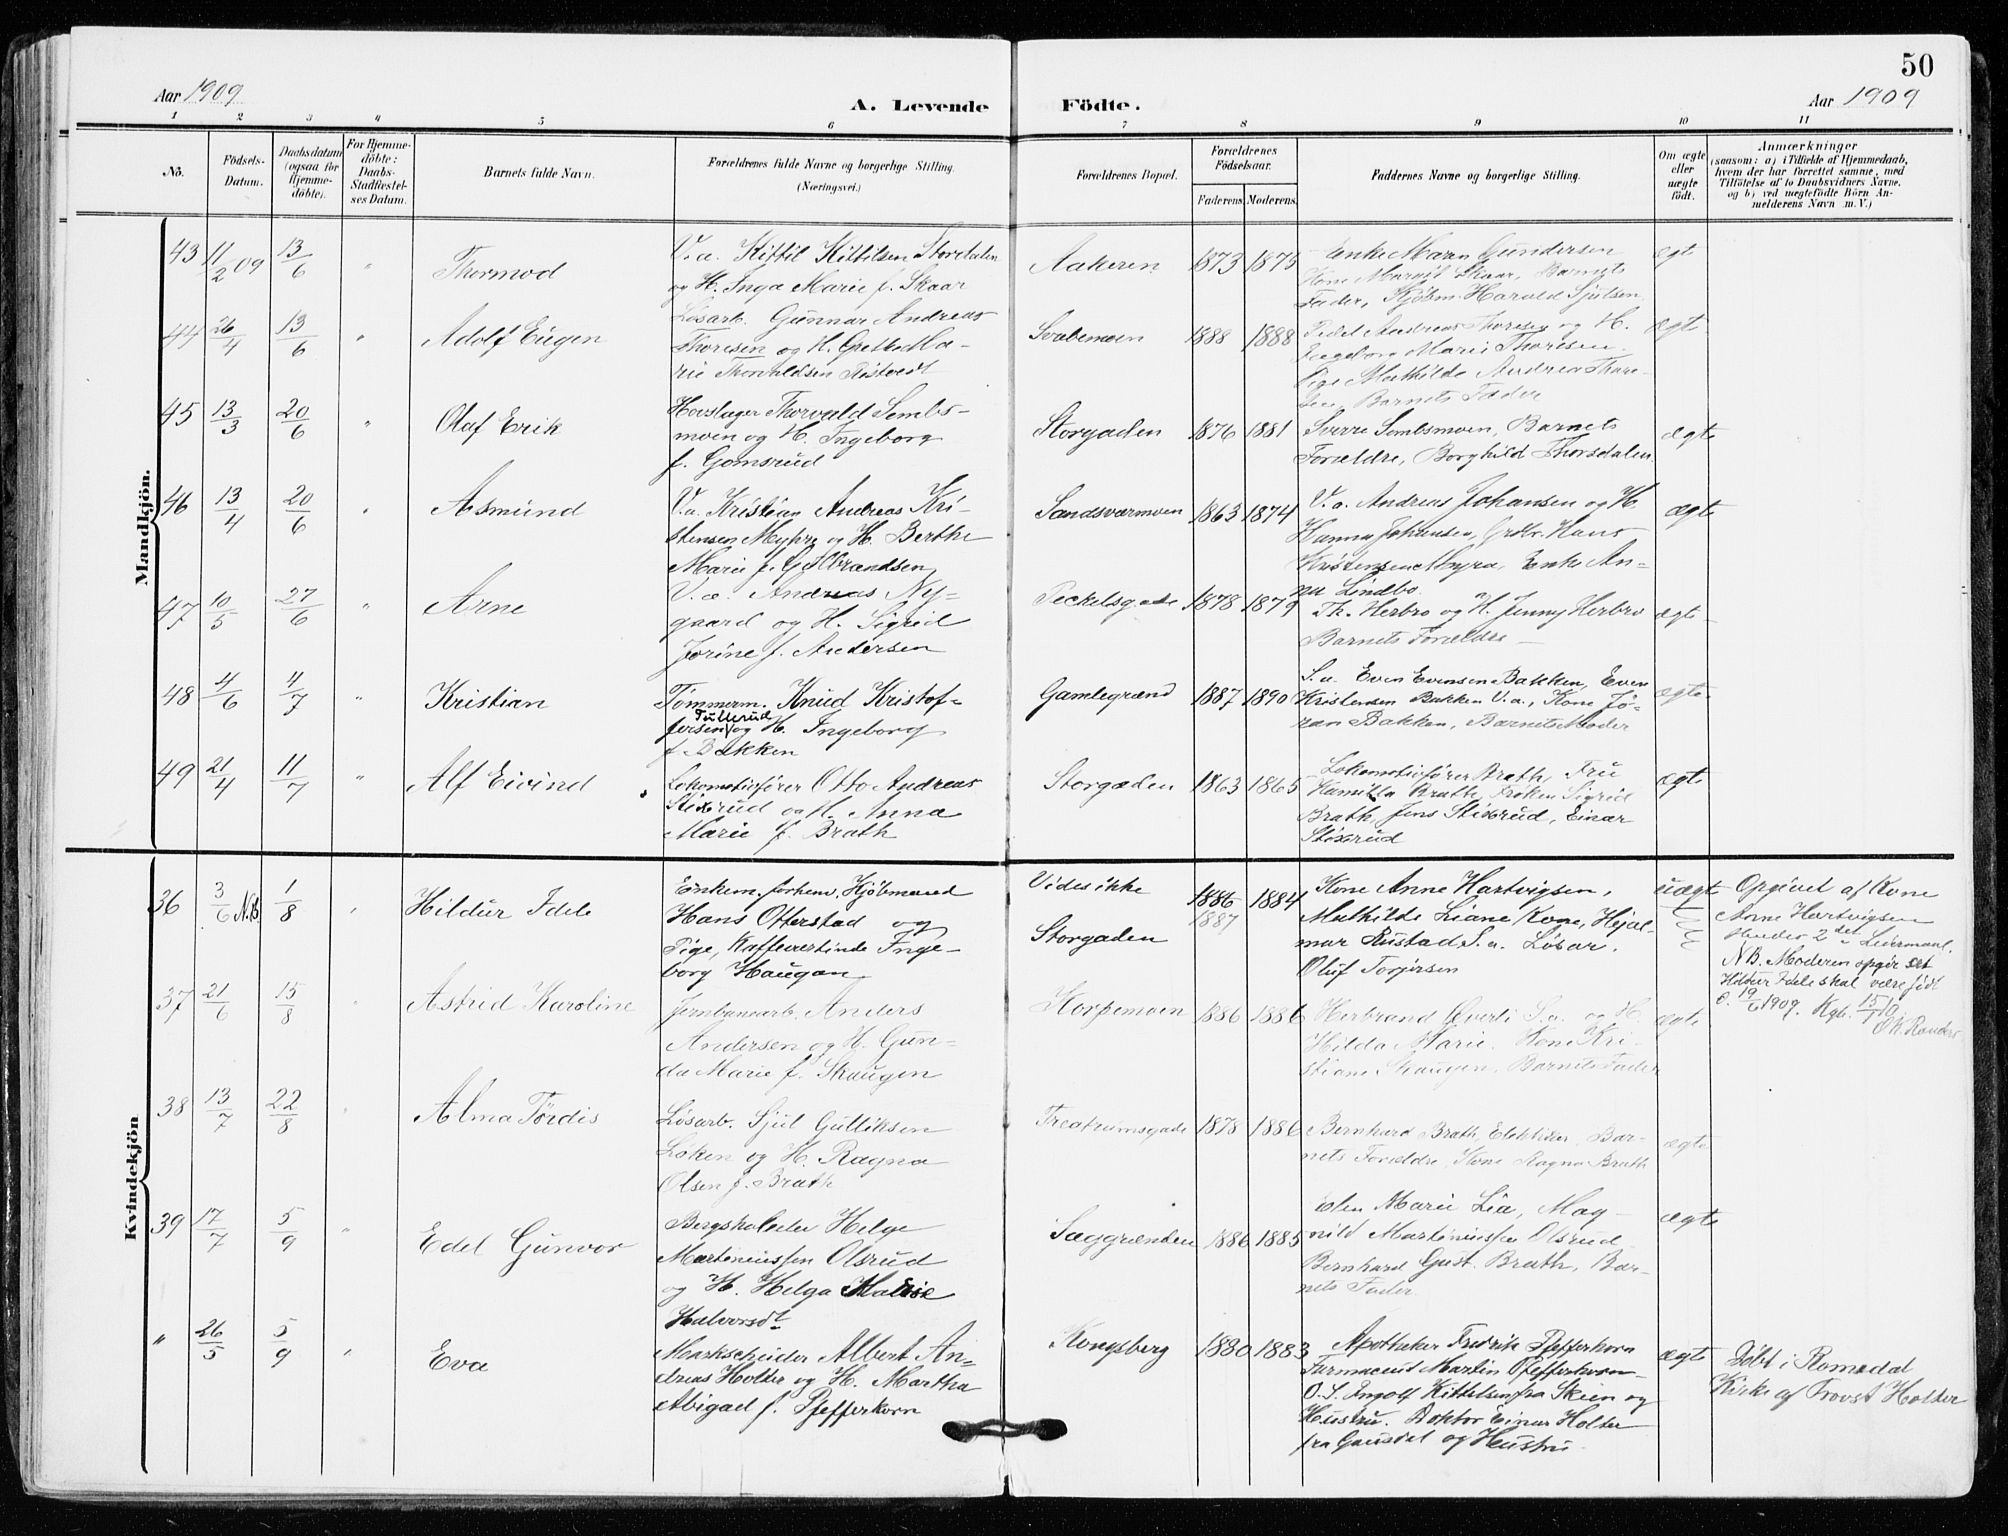 50
Aar 1909
A. Levende Födte.
Aar 1909
1 2 3 4 5 6 7 8 9 10 11
No.
Födsels-Datum.
Daabsdatum (ogsaa for Hjemme-döbte).
For Hjemme-döbte: Daabs-Stadfæstel-ses Datum.
Barnets fulde Navn.
Forældrenes fulde Navne og borgerlige Stilling.
(Næringsvei.)
Forældrenes Bopæl.
Forældrenes Födselsaar.
Faderens. Moderens.
Faddernes Navne og borgerlige Stilling.
Om ægte eller uægte födt.
Anmærkninger
(saasom: a) i Tilfælde af Hjemmedaab,
hvem der har forrettet samme, med
Tilföielse af to Daabsvidners Navne,
og b) ved uægtefödte Börn An-
melderens Navn m. V.)
Mandkjön.
43 11/2 09 13/6 " Thormod
V.a. Kittil Kittilsen Stordalen
og H. Inga Marie f. Skaar
Aakeren 1873 1875
Enke Maren Gundersen
Kone Margit Skaar, Barnets
Fader, Kjøbm. Harald Sjulsen
ægt
44 26/4 13/6 " Adolf Eugen
Løsarb. Gunnar Andreas
Thoresen og H. Grethe Ma-
rie Thorvaldsen Tistvedt
Svabemoen 1888 1888
Pedel Andreas Thoresen og H.
Ingeborg Marie Thoresen.
Pige Mathilde Andrea Thore-
sen, Barnets Fader
ægt
45 13/3 20/6 " Olaf Erik
Hovslager Thorvald Sembs-
moen og H. Ingeborg
f. Gomsrud
Storgaden 1876 1881
Sverre Sembsmoen, Barnets
Forældre, Borghild Thorsdalen
ægte
46 13/4 20/6 " Asmund
V.a. Kristian Andreas Kri-
stensen Myhre og H. Berthe
Marie f. Gulbrandsen
Sandsværmoen 1863 1874
V.a. Andreas Johansen og H.
Hanna Johansen, Grdbr. Hans
Kristensen Myra, Enke An-
na Lindbo.
ægte
47 10/5 27/6 " Arne
V.a. Andreas Ny-
gaard og H. Sigrid
Jorine f. Andersen
Peckelsgade 1878 1879
Th. Herbro og H. Jenny Herbro
Barnets Forældre
ægte
48 4/6 4/7 " Kristian
Tømmerm. Knud Kristof-
Tullerud
fersen og H. Ingeborg
f. Bakken
Gamlegrænd 1887 1890
S.a. Even Evensen Bakken, Even
Kristensen Bakken V.a., Kone Jø-
ran Bakken, Barnets Moder
ægte
49 21/4 11/7 " Alf Eivind
Lokomotivfører Otto Andreas
Stixrud og H. Anna
Marie f. Brath
Storgaden 1863 1865
Lokomotivfører Brath, Fru
Kamilla Brath, Frøken Sigrid
Brath, Jens Stixrud, Einar
Stixrud
ægte
Kvindekjön
36 3/6 N.B. 1/8 " Hildur Edele
Enkem. forhenv. Kjøbmand
Hans Otterstad og
Pige, Kaffevertinde Inge-
borg Haugan
Vides ikke
Storgaden
1886 1884
1887
Kone Anne Hartvigsen,
Mathilde Liane Kone, Hejal-
mar Rustad S.a. Løsar.
Oluf Torjersen
uægt
Opgivet af Kone
Anne Hartvigsen
Hendes 2det Leiermaal.
NB. Moderen opgir at
Hildur Edele skal være født
d. 19/6 1909. Kgb. 15/1 10.
37 21/6 15/8 Astrid Karoline
Jernbanearb. Anders
Andersen og H. Gun-
da Marie f. Skaugen
Korpemoen 1886 1886
Herbrand Øverli S.a. og H.
Hilda Marie. Kone Kri-
stiane Skaugen, Barnets Fader
ægte
38 13/7 22/8 " Alma Tordis
Løsarb. Sjul Gulliksen
Løken og H. Ragna
Olsen f. Brath
Treatrumsgade 1878 1886
Bernhard Brath, Elektriker, Bar-
nets Forældre, Kone Ragna Brath
ægte
39 17/7 5/9 " Edel Gunvor
Bergskaleelev Helge
Martiniussen Olsrud
og H. Helga Marie
Halvorsdt.
Saggrænden 1886 1885
Elen Marie Lia, Mag-
nild Martiniussen Olsrud
Bernhard Gust. Brath, Bar-
nets Fader
ægte
" 26/5 5/9 " Eva
Markscheider Albert An-
dreas Holter og H. Martha
Abigael f. Pfefferkorn
Kongsberg 1880 1883
Apotheker Fredrik Pfefferkorn
Farmaceut Martin Pfefferkorn
O.S. Ingolf Kittelsen fra Skien og
Hustru. Doktor Einar Holter
fra Gausdal og Hustru.
ægte
Døbt i Romedal
Kirke af Provst Holter